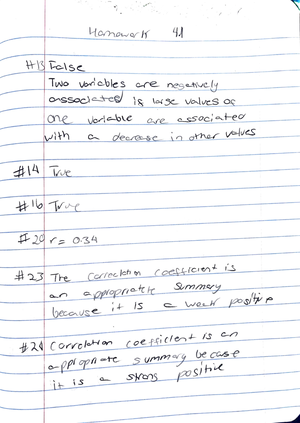 Homework 4.1
#13 False
Two variables are negatively
associated is large values of
one variable are associated
with a decrease in other values
#14 True
#16 True
#20 r = 0.34
#23 The correlation coefficient is
an appropriate summary
because it is a weak positive
#24 Correlation coefficient is an
appropriate summary because
it is a strong positive